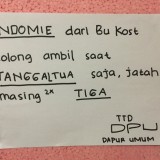 INDOMIE dari Bu Kost
olong ambil saat
TANGGALTUA saja, jatah
masing 2x TIGA
TTD
DPU
DAPUR UMUM